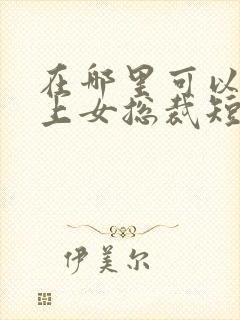 在哪里可以
上女总裁短
伊美尔